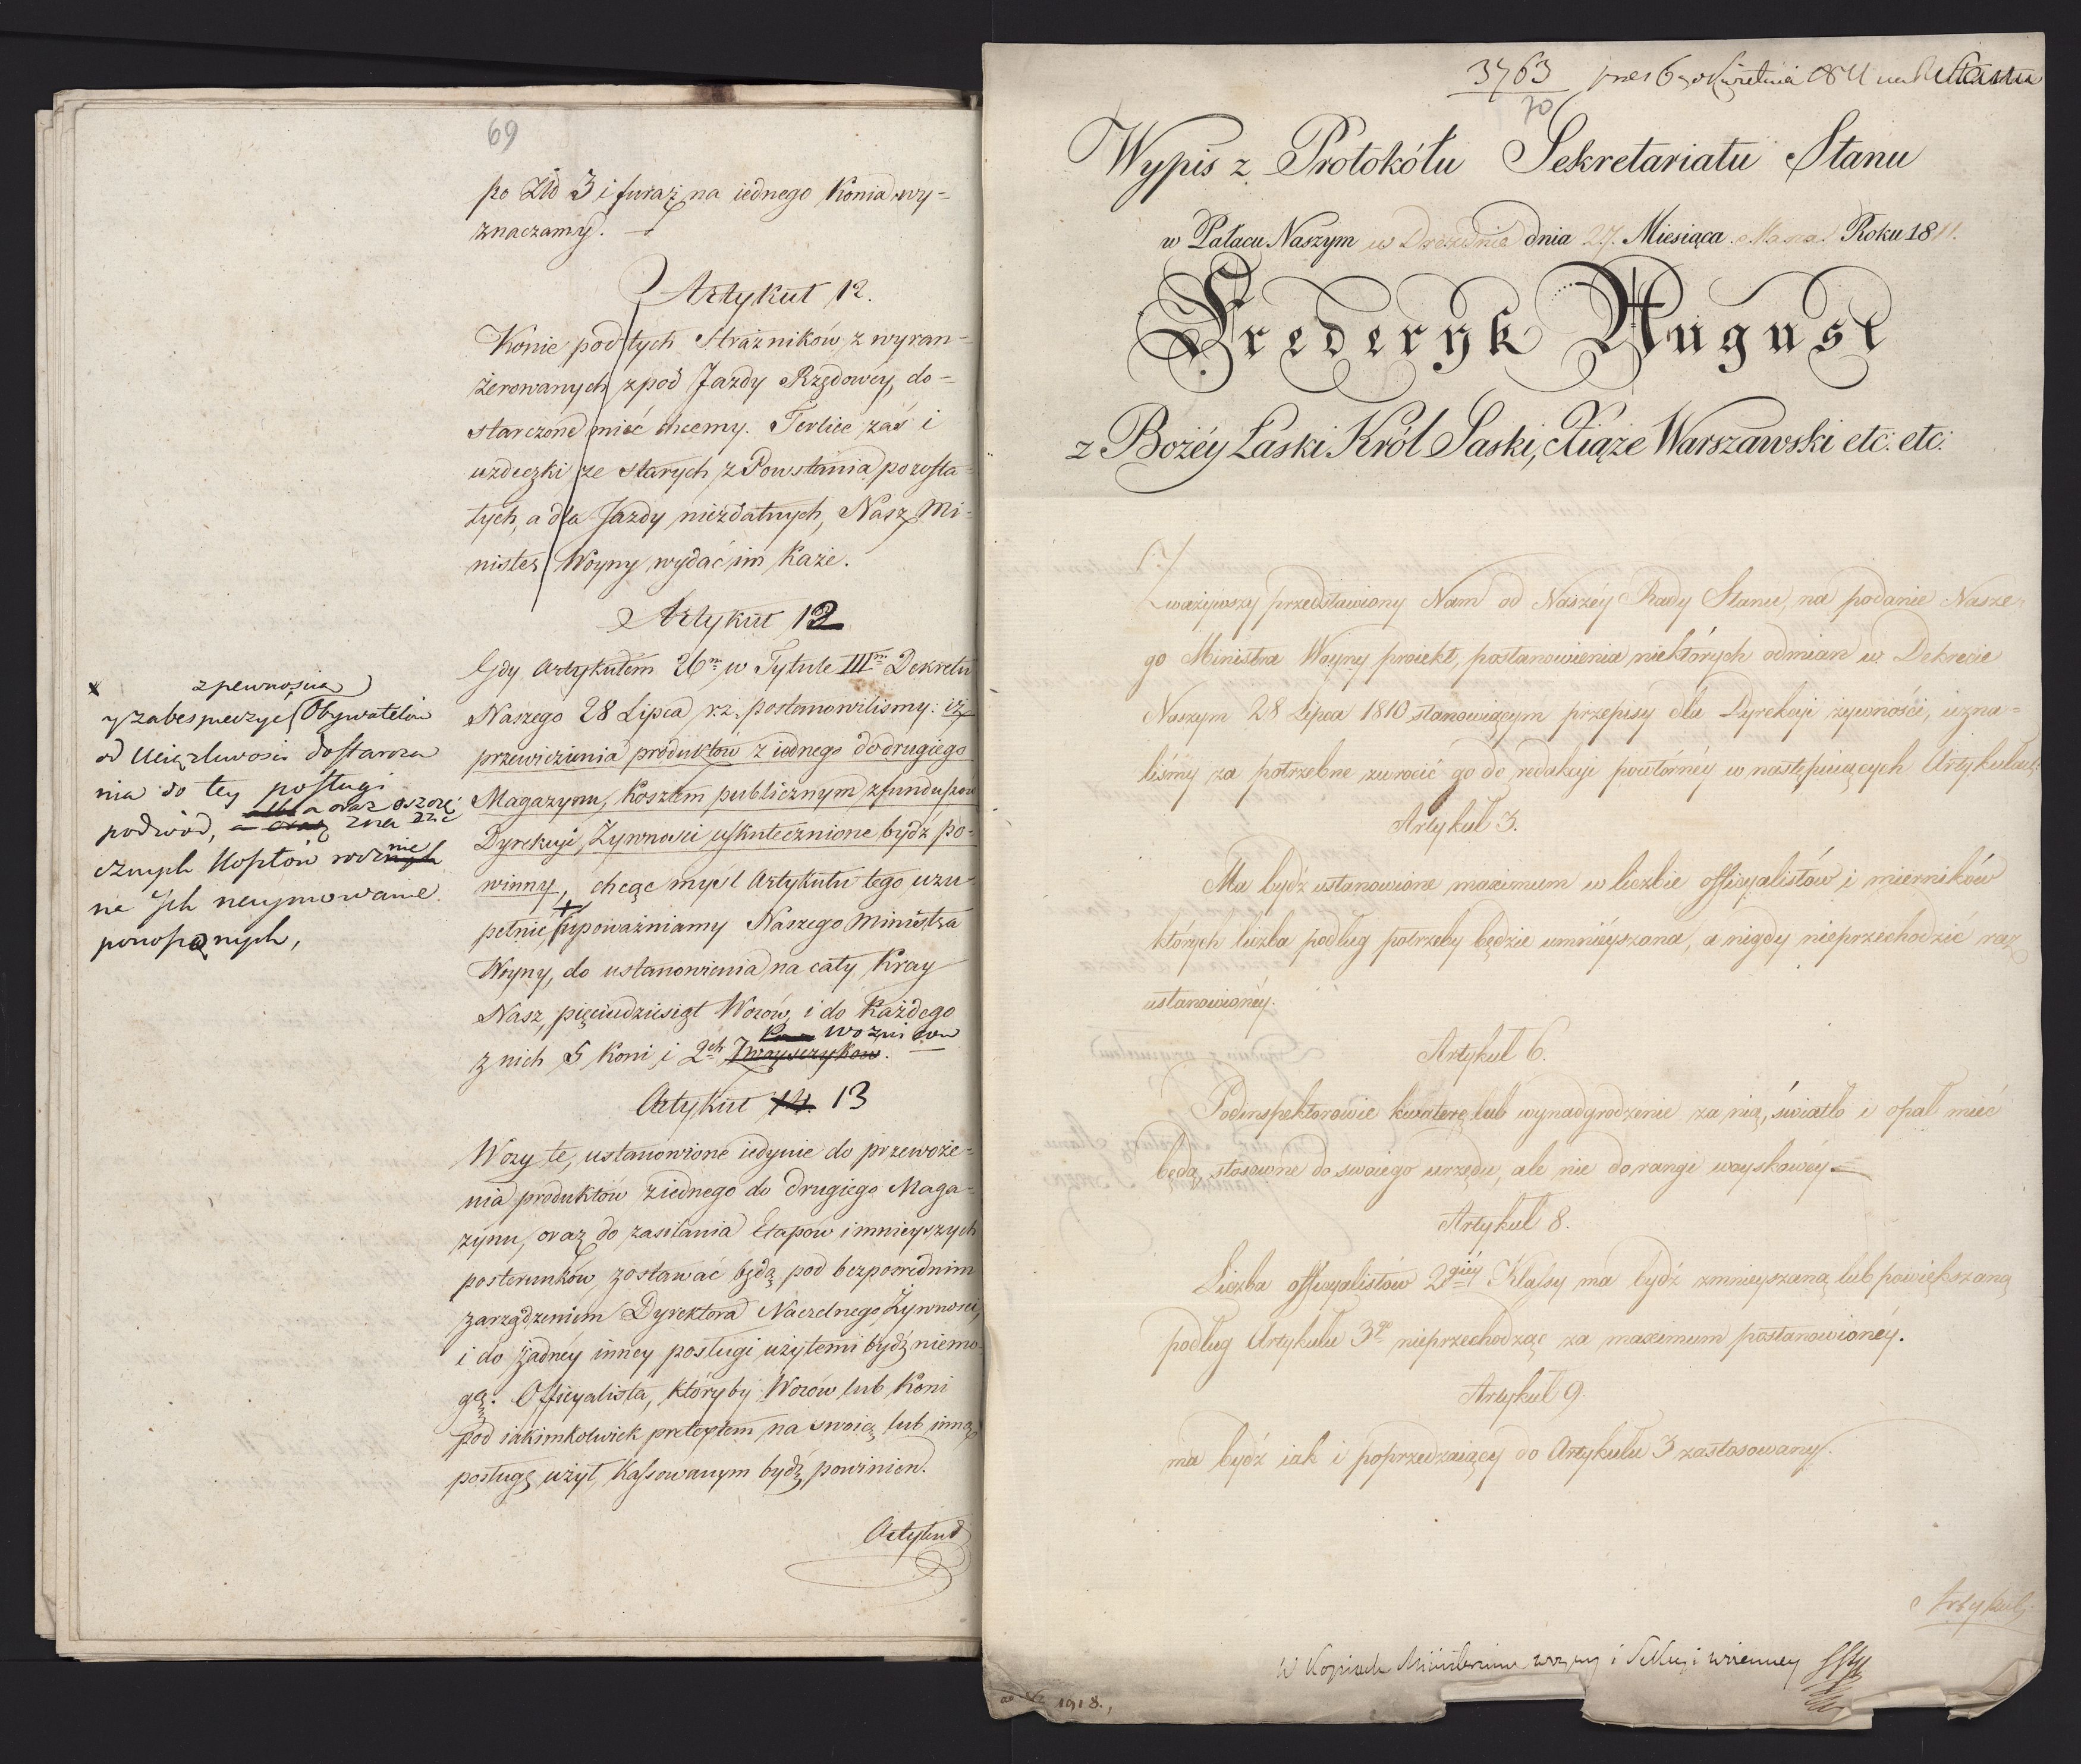 69
po Złd 3 i furaż na iednego Konia wy=
znaczamy.
Artykuł 12.
Konie pod tych Strażników z wyran=
żerowanych zpod Jazdy Rzędowey, do=
starczone mieć chcemy. Terlice zaś i
uzdeczki ze starych z Powstania pozosta=
łych, a dla Jazdy niezdatnych, Nasz Mi=
nister Woyny wydać im Każe.
Artykuł 12
Gdy Artykułem 26m w Tytule IIIm Dekretu
Naszego 28 Lipca r.z. postanowilismy: iż
przewiezienia produktów z iednego do drugiego
Magazynu, Kosztem publicznym z funduszow
Dyrekcyi Żywnosci uskutecznione bydź po-
winny, chcąc mysl Artykułu tego uzu-
pełnić, + upoważniamy Naszego Ministra
Woyny, do ustanowienia na cały Kray
Nasz, pięciudziesiąt Wozów, i do Każdego
z nich 5 Koni i 2ch woznicow
Artykuł 14. 13
Wozy te, ustanowione iedynie do przewoże=
nia produktów z iednego do drugiego Maga=
zynu, oraz do zasilania Etapow i mnieyszych
posterunków, zostawać będą pod bezposrednim
zarządzeniem Dyrektora Naczelnego Żywnosci,
i do żadnéy innéy posługi użytemi bydź niemo
gą. Officyalista, któryby Wozów lub Koni
pod iakimkolwiek pretextem na swoią lub inną
posługę użył, Kassowanym bydź powinien.
Artykuł
x zpewnością
y zabespieczyć Obywatelow
od Uciążliwosci dostarcza
nia do tey posługi
podwód, oraz oszczę
dzić znacznych Kosztów
na Ich neymowanie
ponoszonych,
3763 6go Kwietnia 1811
70
Wypis z Protokółu Sekretariatu Stanu
w Pałacu Naszym w Dreznie dnia 27. Miesiąca Marca. Roku 1811.
Frederyk August
z Bożéy Łaski Król Saski, Xiąże Warszawski etc: etc:
Zważywszy przedstawiony Nam od Naszéy Rady Stanu, na podanie Nasze-
go Ministra Woyny proiekt, postanowienia niektórych odmian w Dekrecie
Naszym 28 Lipca 1810 stanowiącym przepisy dla Dyrekcyi żywności, uzna=
liśmy za potrzebne zwrocić go do redakcyi powtórnéy w następuiących Artykułach:
Artykuł 3.
Ma bydź ustanowione maximum w liczbie officyalistów i mierników
których liczba podług potrzeby będzie umnieyszona, a nigdy nieprzechodzić raz
ustanowionéy.
Artykuł 6.
Podinspektorowie kwaterę lub wynadgrodzenie za nią, światło i opał mieć
będą stosowne do swoiego urzędu, ale nie do rangi woyskowéy.
Artykuł 8.
Liczba officyalistów 2giéy Klassy ma bydź zmnieyszaną lub powiększaną
podług Artykułu 3go nieprzechodząc za maximum postanowionéy.
Artykuł 9.
ma bydź iak i poprzedzaiący do Artykułu 3 zastosowany.
Artykuł
W Kopiach Ministrowi woyny i Sekcyi woienney
1918.,